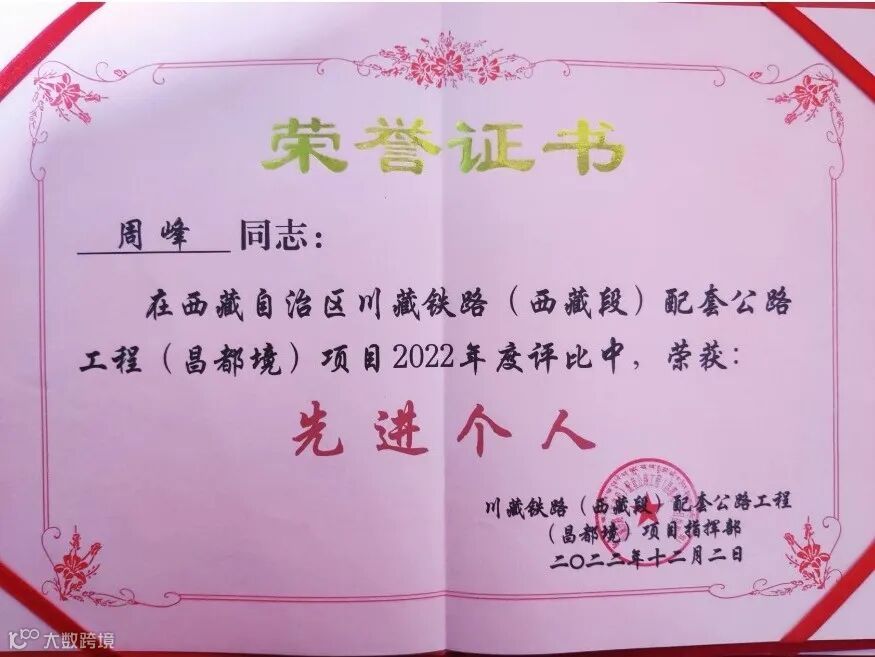 荣誉证书
周峰 同志：
在西藏自治区川藏铁路（西藏段）配套公路
工程（昌都境）项目2022年度评比中，荣获：
先进个人
川藏铁路（西藏段）配套公路工程
（昌都境）项目指挥部
二〇二二年十二月二日
大数跨境